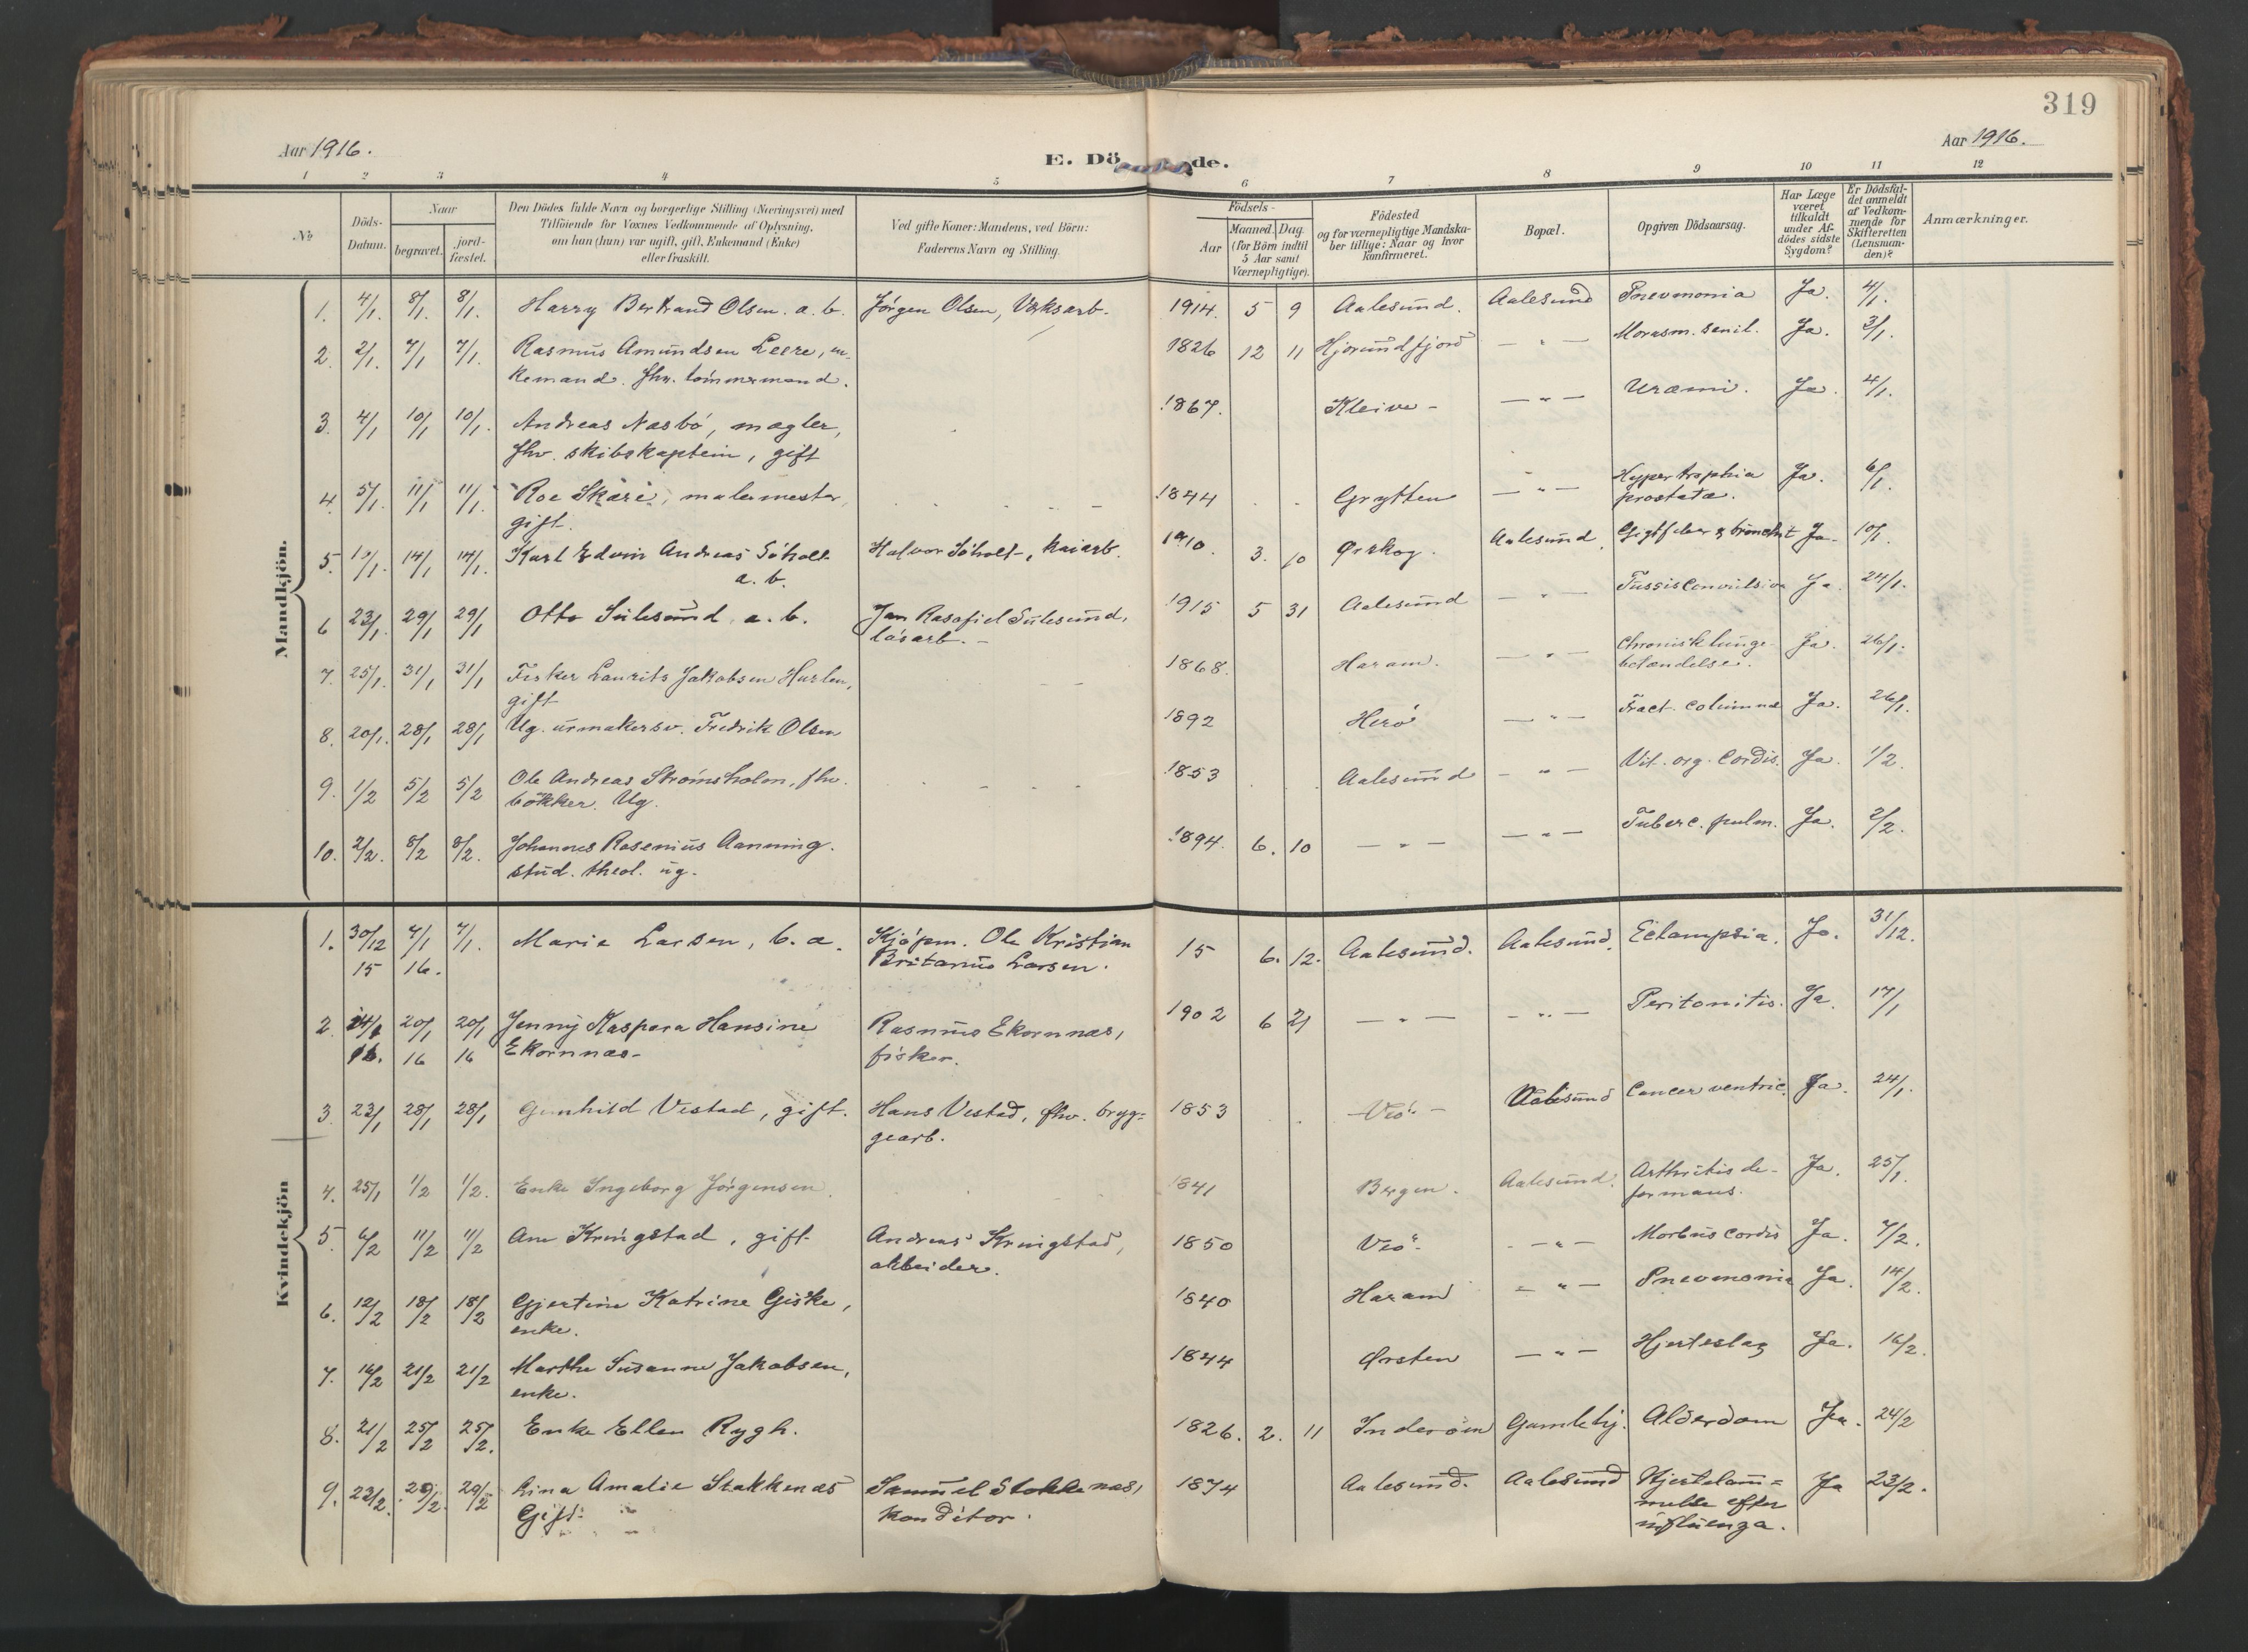 319
Aar 1916.
E. Dö de.
Aar 1916.
1 2 3 4 5 6 7 8 9 10 11 12
No
Döds-
Datum.
Naar
begravet.
jord-
fæstet.
Den Dödes fulde Navn og borgerlige Stilling (Næringsvei) med
Tilföiende for Voxnes Vedkommende af Oplysning,
om han (hun) var ugift, gift, Enkemand (Enke)
eller fraskilt.
Ved gifte Koner: Mandens, ved Börn:
Faderens Navn og Stilling.
Födsels-
Aar
Maaned. Dag.
(for Börn indtil
5 Aar samt
Værnepligtige).
Födested
og for værnepligtige Mandska-
ber tillige: Naar og hvor
konfirmeret.
Bopæl.
Opgiven Dödsaarsag.
Har Læge
været
tilkaldt
under Af-
dödes sidste
Sygdom?
Er Dödsfal-
det anmeldt
af Vedkom-
mende for
Skifteretten
(Lensman-
den)?
Anmærkninger.
Mandkjön.
1. 4/1. 8/1. 8/1. Harry Bertrand Olsen. a. b. Jörgen Olsen, Værksarb. 1914. 5 9 Aalesund. Aalesund Pnevmonia Ja. 4/1.
2. 2/1. 7/1 7/1. Rasmus Amundsen Leere, en- 1826 12 11 Hjørundfjord — " — Morasm. senil. Ja. 3/1.
kemand. fhv. tömmermand.
3. 4/1 10/1 10/1. Andreas Næsbö, mægler, 1867. Kleive - — " — Uræmi. Ja. 4/1.
fhv. skibskaptein, gift
4. 5/1. 11/1 11/1. Roe Skare, malermester, 1844 Grytten — " — Hypertrophia Ja. 6/1.
gift. prostatæ.
5. 14/1 14/1. Karl Edvin Andreas Söholt Halvor Söholt, kaiarb. 1910. 3. 10 Ørskog. Aalesund. Gigtfeber & bronchit Ja. 10/1.
a. b.
6 23/1. 29/1 29/1 Otto Sulesund a. b. Jan Sulesund, 1915 5 31 Aalesund — " — Tussis convulsiva Ja. 24/1.
lösarb. -
7. 25/1. 31/1 31/1 Fisker Laurits Jakobsen Hurlen, 1868. Haram. — " — Chronisk lunge- Ja. 26/1.
gift betændelse.
8. 20/1. 28/1 28/1 Ug. urmakersv. Fredrik Olsen 1892 Herö — " — Fract. columnæ Ja. 26/1.
9. 1/2 5/2 5/2 Ole Andreas Strömsholm, fhv. 1853 Aalesund — " — Vit. org. Cordis. Ja. 1/2.
bökker. Ug.
10. 2/2. 8/2 8/2. Johannes Rosenius Aanning. 1894. 6. 10 — " — — " — Tuberc. pulm. Ja. 2/2.
stud. theol. ug.
Kvindekjön
1. 30/12 7/1 7/1. Marie Larsen, b. a. Kjöpm. Ole Kristian 15 6. 12. Aalesund. Aalesund. Eclampsia. Ja. 31/12.
15 16. Britanus Larsen.
2. 14/1 20/1 20/1 Jenny Kaspara Hansine Rasmus Ekornnæs, 1902 6 21 — " — — " — Peritonitis. Ja. 17/1
16. 16 16 Ekornnæs- fisker.
3. 23/1 28/1 28/1 Gunhild Vestad, gift. Hans Vestad, fhv. bryg- 1853 Veö - Aalesund Cancer ventric. Ja. 24/1.
gearb.
4. 25/1 1/2 1/2. Enke Ingeborg Jörgensen. 1841 Bergen. Aalesund. Arthritis de- Ja. 25/1.
formans.
5. 6/2 11/2 11/2 Ane Kringstad, gift. Andreas Kringstad, 1850 Veö. — " — Morbus cordis Ja. 7/2.
arbeider.
6. 12/2 18/2 18/2 Gjertine Katrine Giske, 1840 Haram — " — Pnevmonia Ja. 14/2.
enke.
7. 16/2 21/2 21/2 Marthe Susanne Jakobsen, 1844 Ørsten — " — Hjerteslag Ja. 16/2.
enke.
8. 21/2 25/2 25/2. Enke Ellen Rygh. 1826. 2. 11 Inderöen Gamlehj. Alderdom Ja. 24/2
9. 23/2. 29/2. 29/2 Lina Amalie Stokkenæs Samuel Stokkenæs, 1874 Aalesund. Aalesund Hjertelam= Ja 23/2.
Gift. konditor. melse efter
influenza.